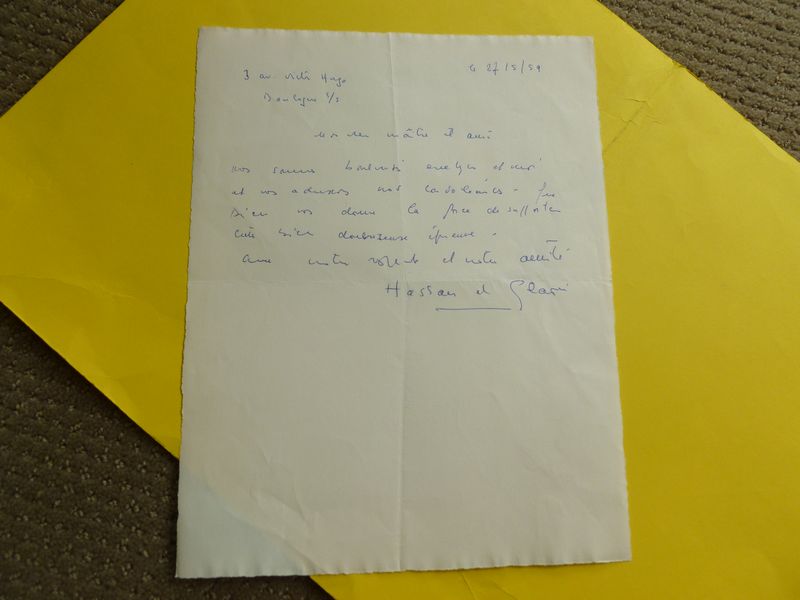 3 av. Victor Hugo
Boulogne s/s
le 27/5/59
Mon cher maître et ami
nos sommes et
et vos adressons nos condoléances. Que
Dieu vos donne la force de supporter
cette bien douloureuse épreuve.
Avec notre respect et notre amitié
Hassan el Glaoui